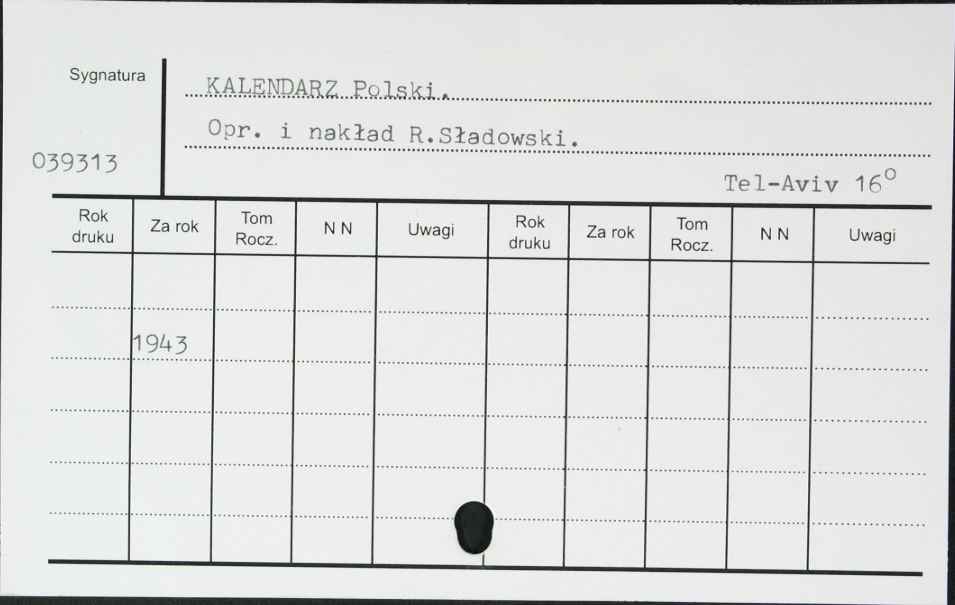 Sygnatura
KALENDARZ Polski.
Opr. i nakład R.Sładowski.
039313
Tel-Aviv 16°
Rok druku Za rok Tom Rocz. N N Uwagi Rok druku Za rok Tom Rocz. N N Uwagi
1943